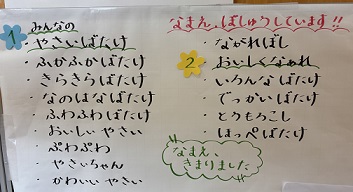 1 みんなの
・やさいばたけ
・ふかふかばたけ
・きらきらばたけ
・なのはなばたけ
・ふわふわばたけ
・おいしい やさい
・ぷわぷわ
・やさいちゃん
・かわいい やさい
なまえ、ぼしゅうしています!!
・ながればし
2 おいしくなぁれ
・いろんなばたけ
・でっかいばたけ
・とうもろこし
・はっぱばたけ
なまえ、
きまりました